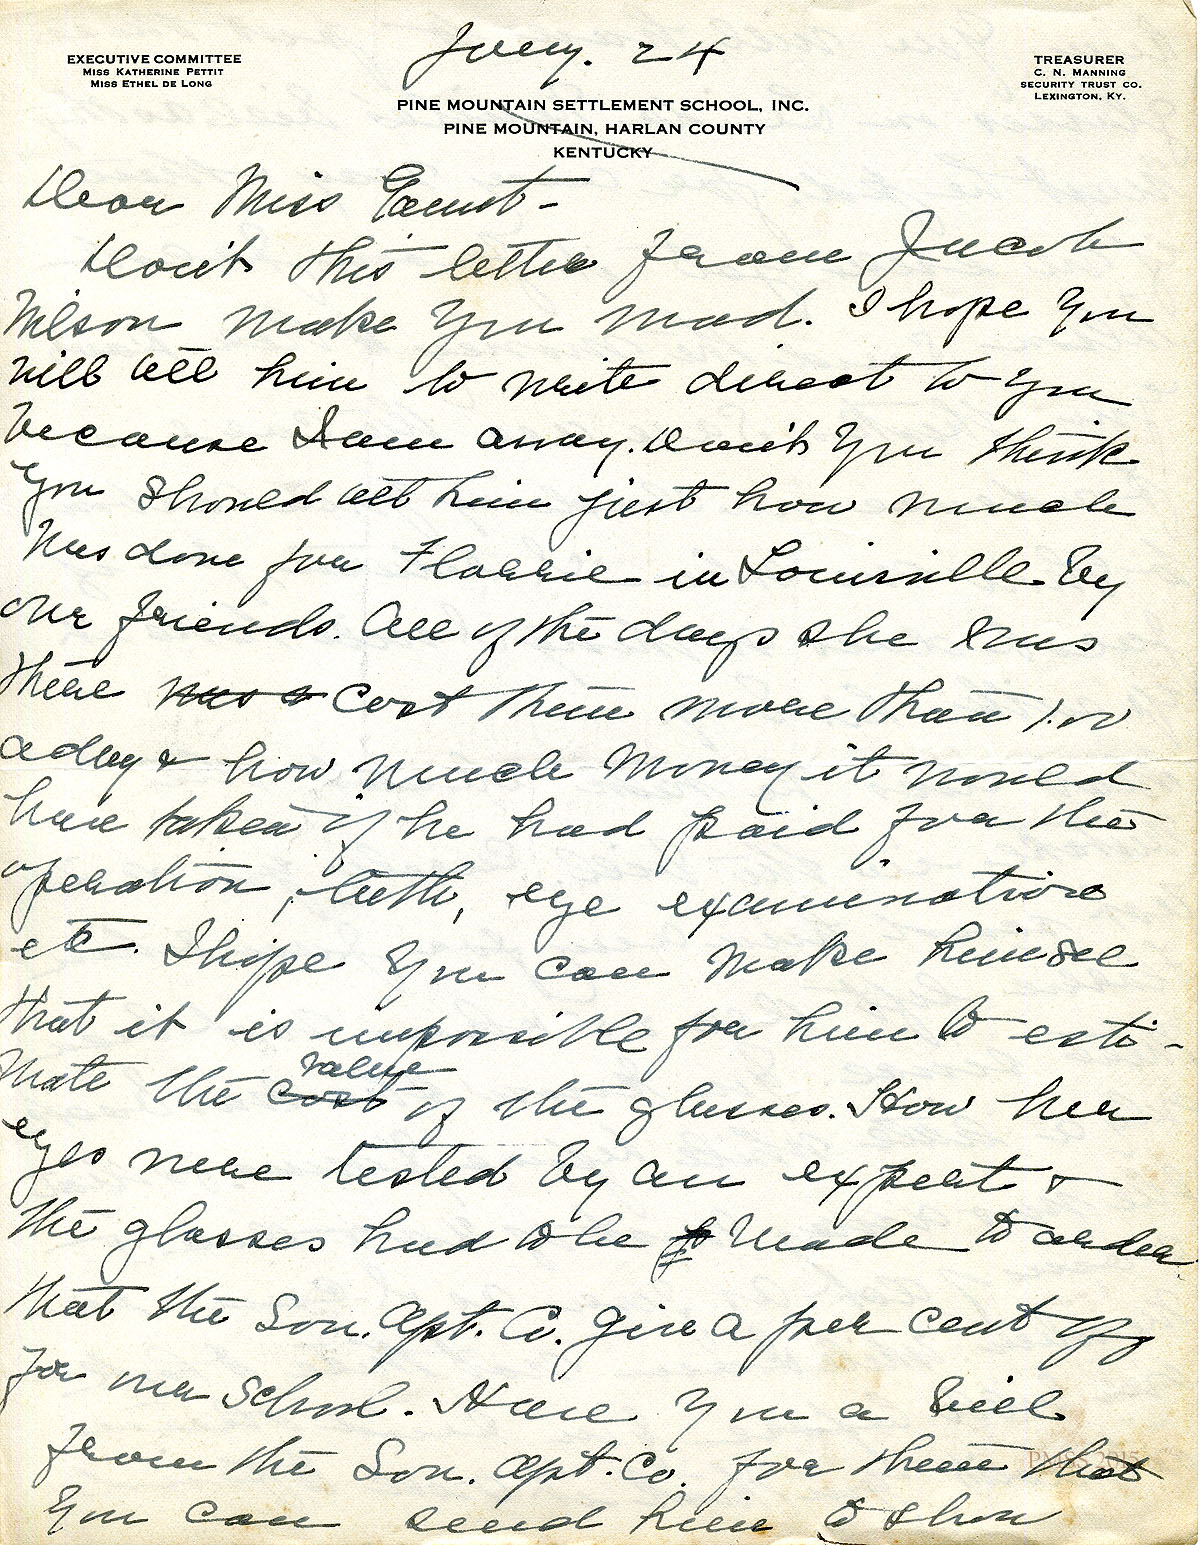 EXECUTIVE COMMITTEE
MISS KATHERINE PETTIT
MISS ETHEL DE LONG
TREASURER
C. N. MANNING
SECURITY TRUST CO.
LEXINGTON, KY.
24
PINE MOUNTAIN SETTLEMENT SCHOOL, INC.
PINE MOUNTAIN, HARLAN COUNTY
KENTUCKY
Dear Miss Gaunt -
Don't this letter from Jacob
Wilson make you mad. I hope you
will tell him to write direct to you
because I am away. Don't you think
you should tell him just how much
was done for Flossie in Louisville by
our friends. All of the days she was
there was a cost them more than 1.00
a day & how much money it would
have taken if he had paid for the
operation, teeth, eye examination
etc. I hope you can make him see
that it is impossible for him to esti-
mate the cost value of the glasses. How her
eyes were tested by an expert &
the glasses had to be made to order
that the Sou. Opt. Co. give a per cent off
for our school. Have you a bill
from the Sou. Opt. Co. for them that
you can send him to show
PMSS 2015